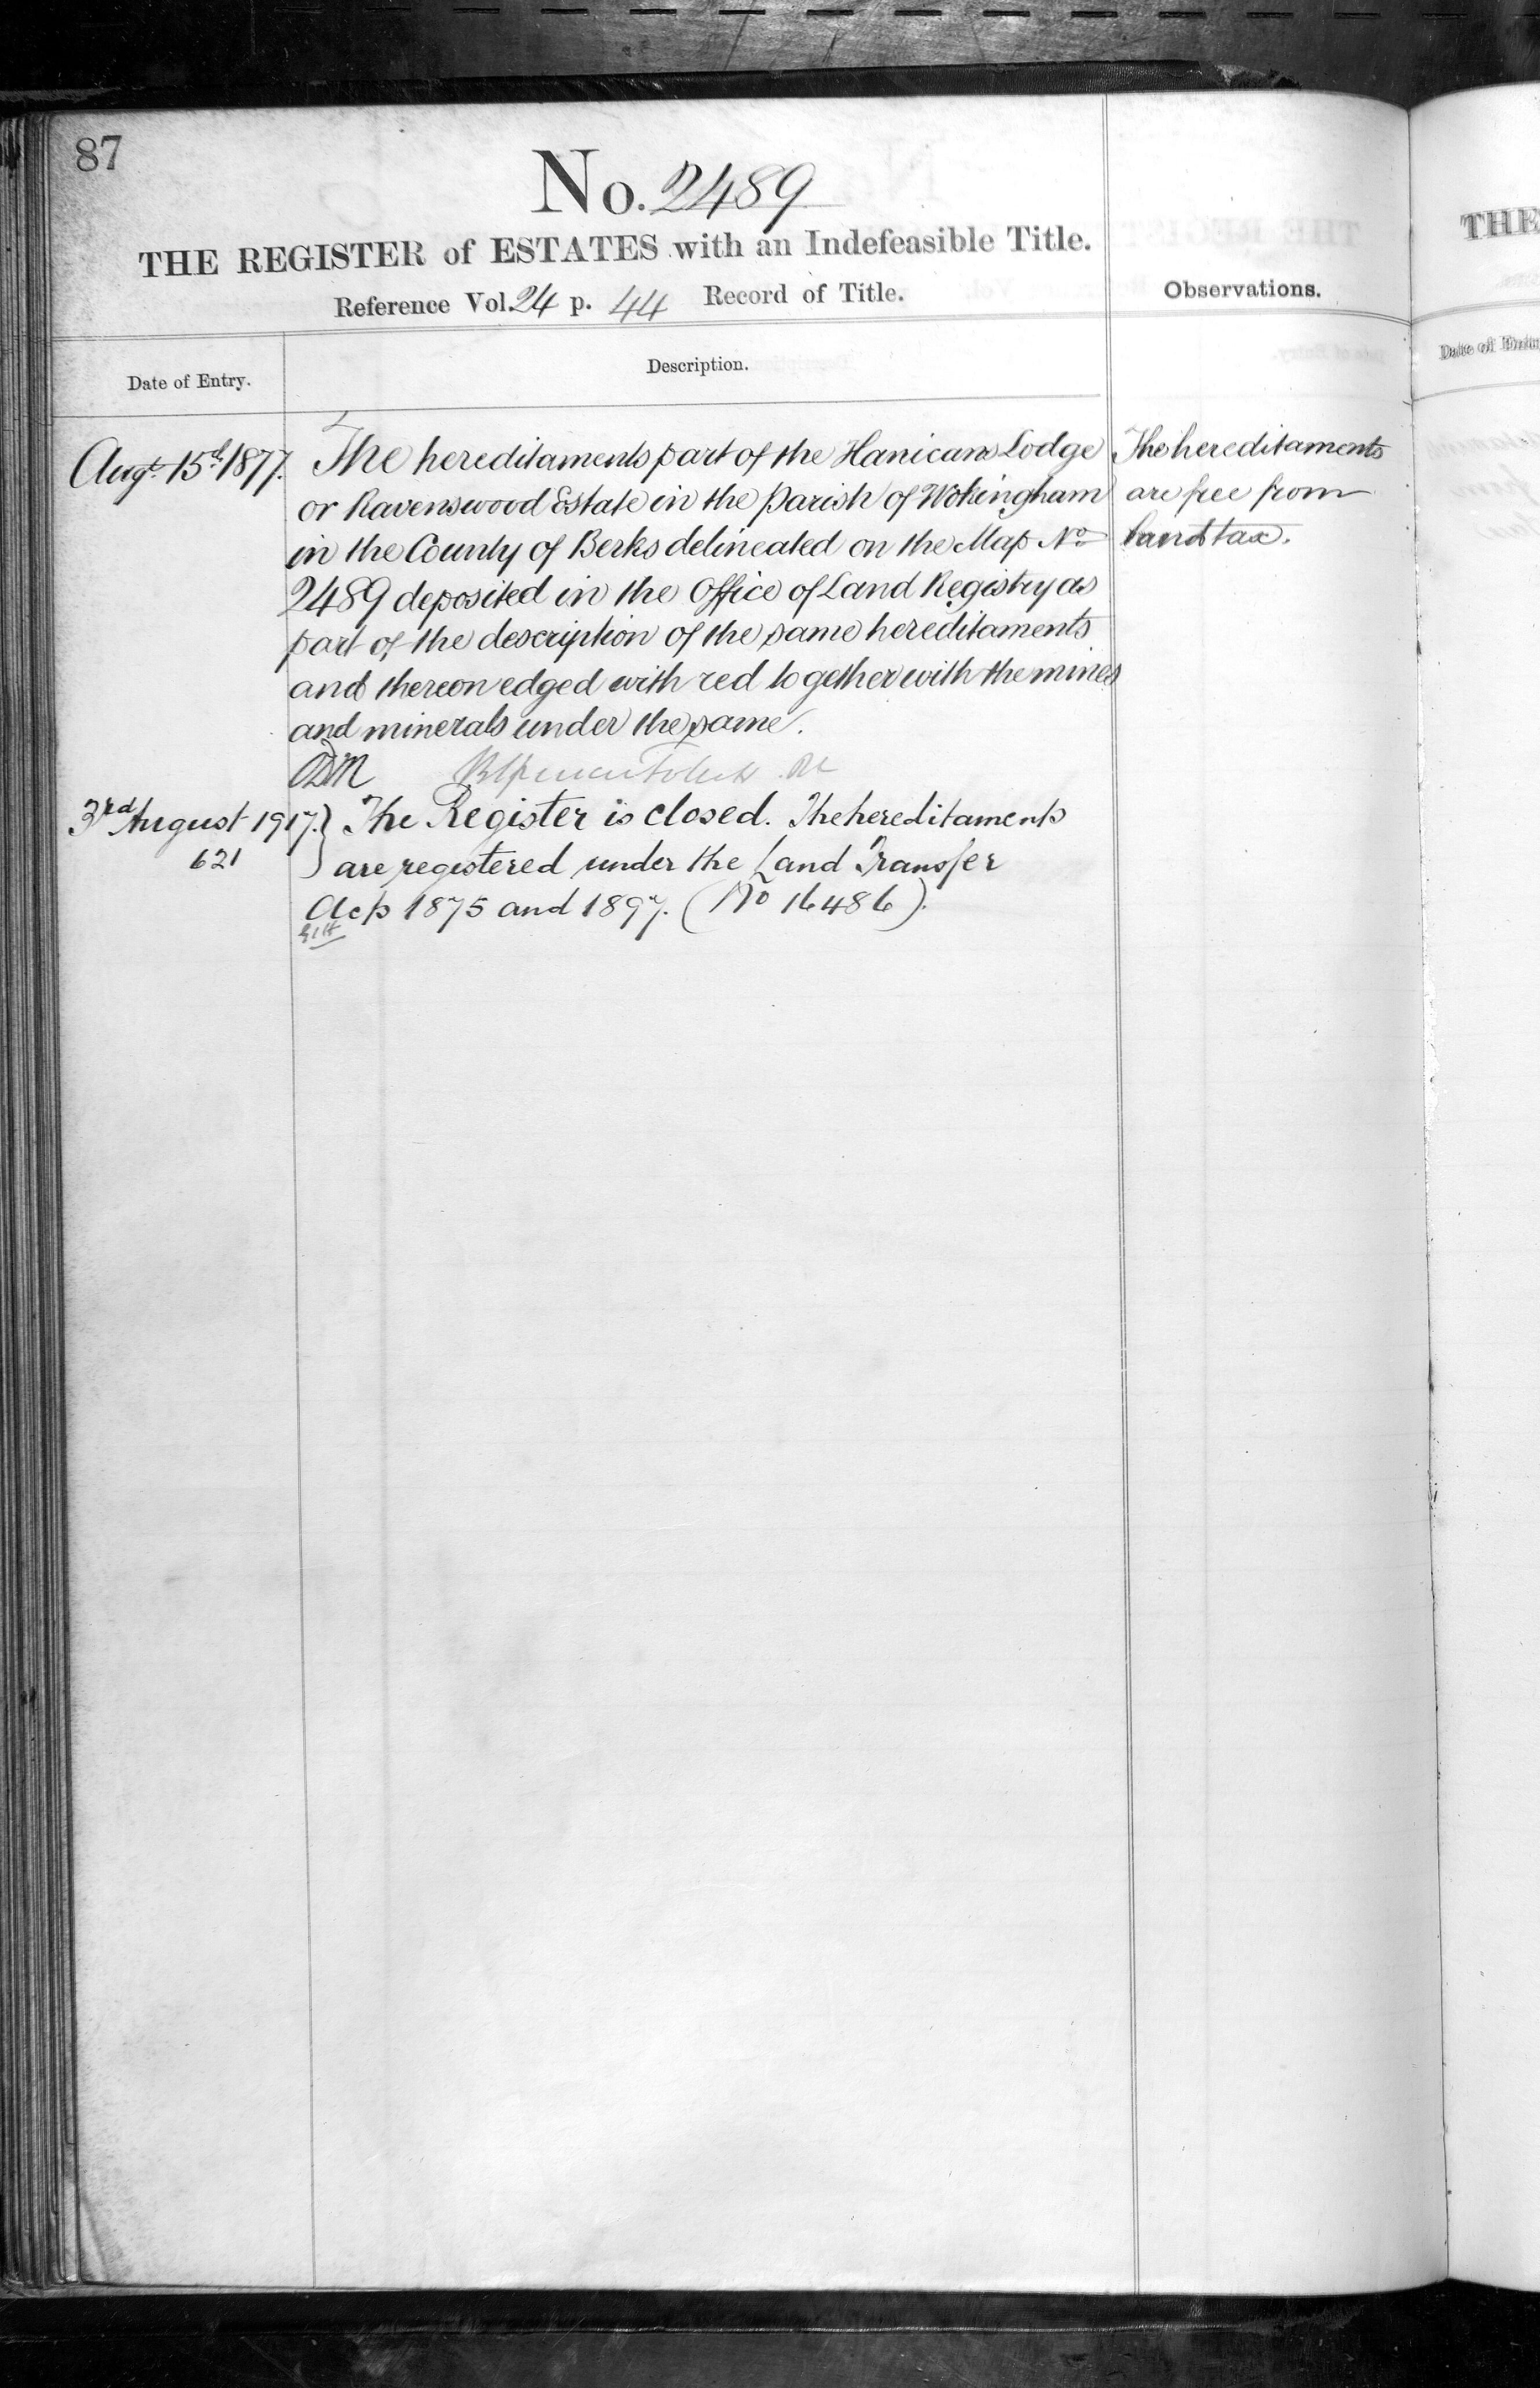 87
No. 2489
THE REGISTER of ESTATES with an Indefeasible Title.
Reference Vol. 24 p. 44 Record of Title.
Observations.
Date of Entry.
Description.
Augt. 15th 1877.
The hereditaments part of the Hanicans Lodge
or Ravenswood Estate in the Parish of Wokingham
in the County of Berks delineated on the Map No
2489 deposited in the Office of Land Registry as
part of the description of the same hereditaments
and thereon edged with red together with the mines
and minerals under the same.
The hereditaments
are free from
Land tax.
3rd August 1917.
621
The Register is closed. The hereditaments
are registered under the Land Transfer
Acts 1875 and 1897. (No 16486).
THE
Date of Entr